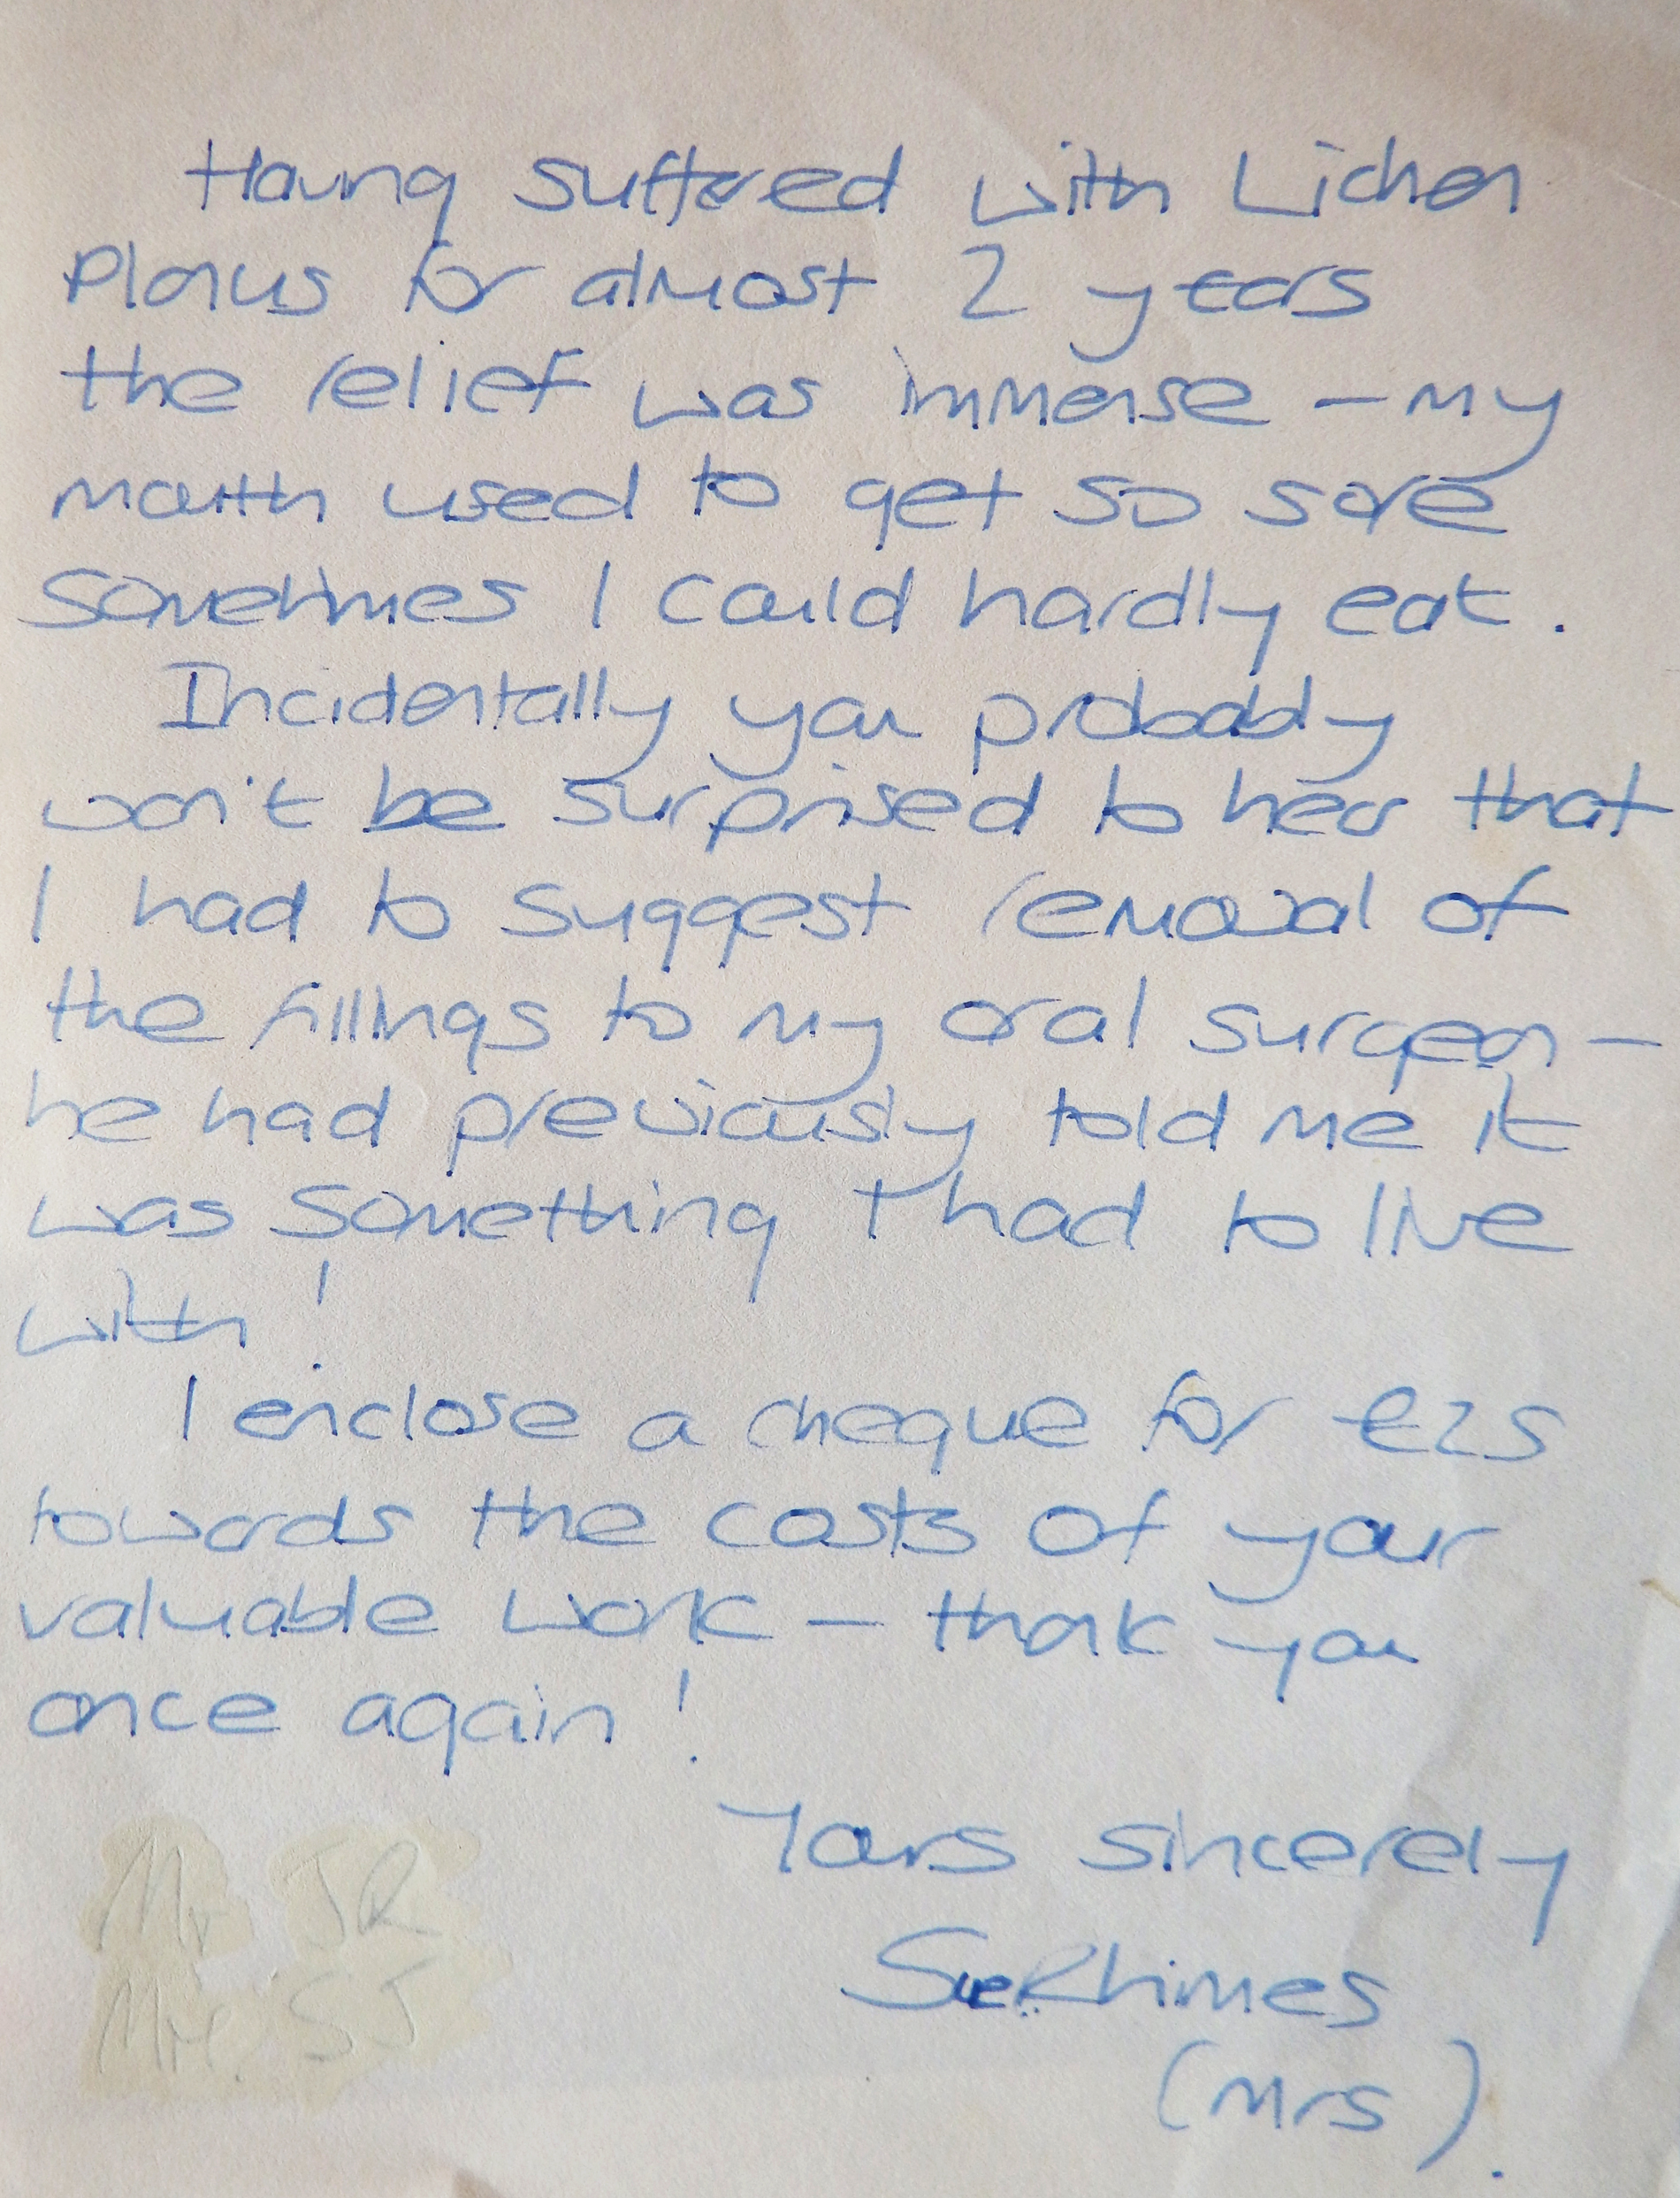 Having suffered with Lichen
Planus for almost 2 years
the relief was immense – my
mouth used to get so sore
sometimes I could hardly eat.
Incidentally you probably
won't be surprised to hear that
I had to suggest removal of
the fillings to my oral surgeon –
he had previously told me it
was something I had to live
with!
I enclose a cheque for £25
towards the costs of your
valuable work – thank you
once again!
Yours sincerely
Sue Rhimes
(Mrs).
Mr JR
SJ